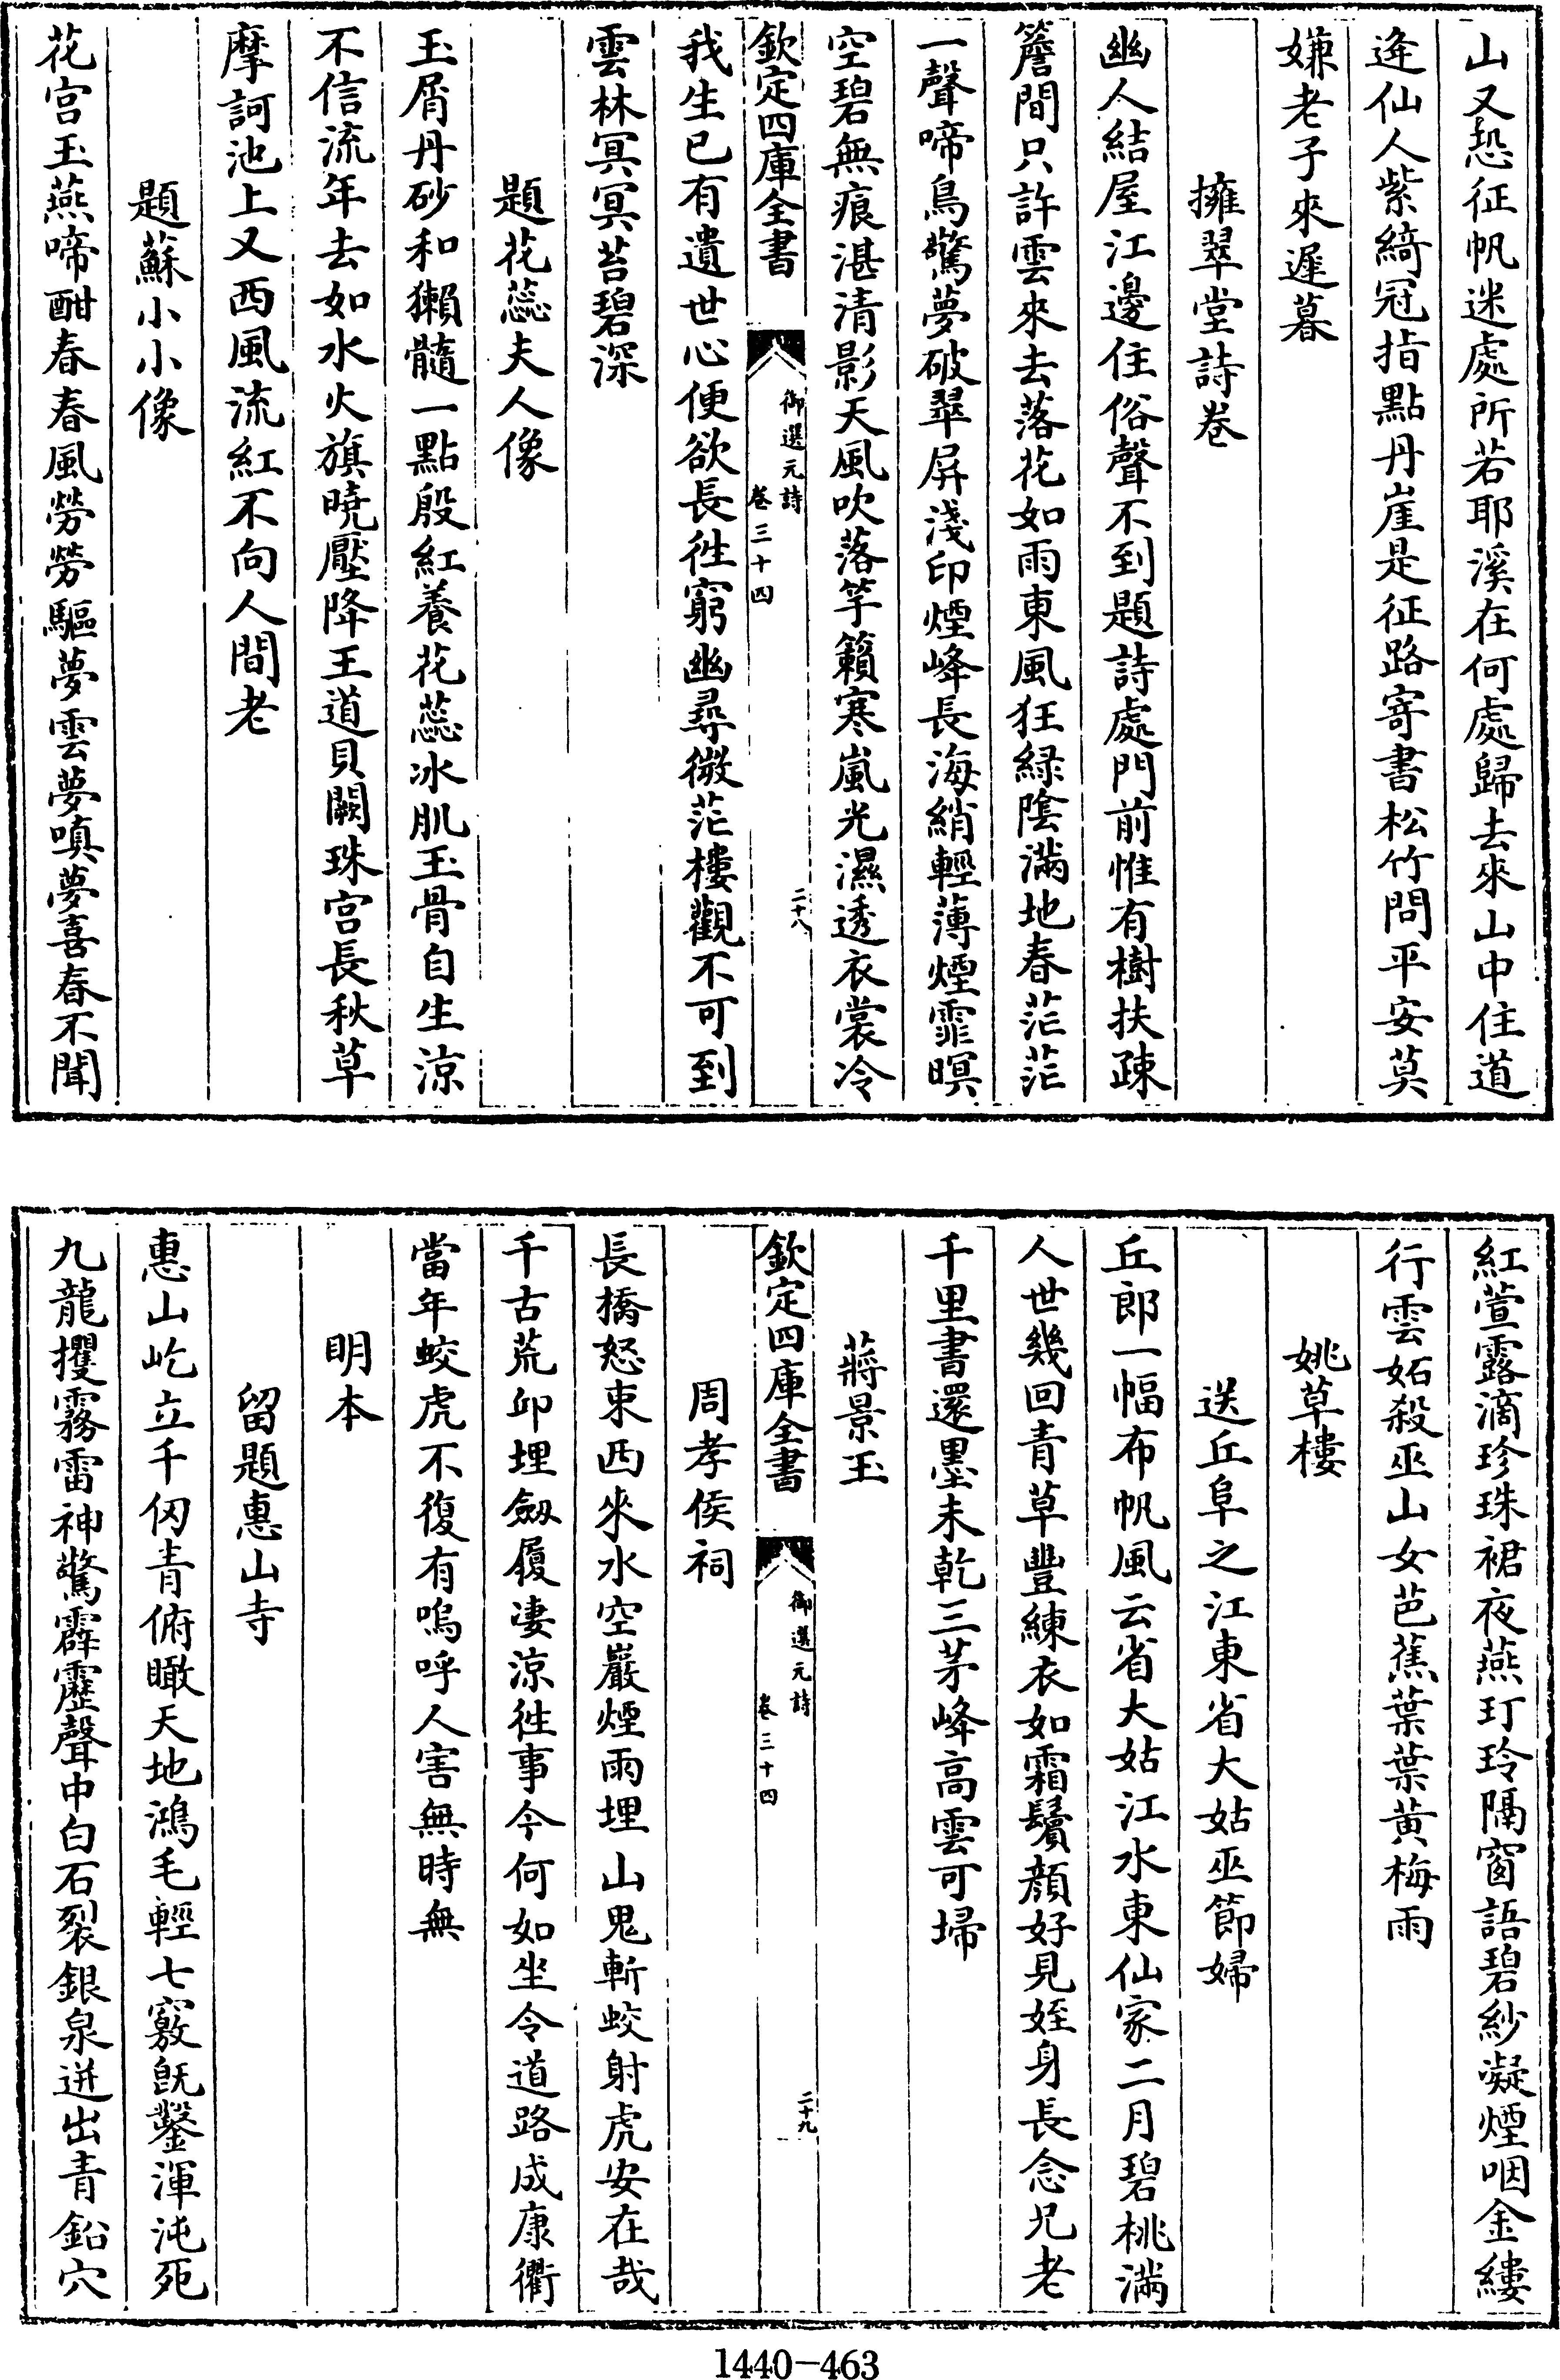 山又恐征帆迷處所若耶溪在何處歸去來山中住道
逄仙人紫綺冠指點丹崖是征路寄書松竹問平安莫
嫌老子來遲暮
擁翠堂詩卷
幽人結屋江邊住俗聲不到題詩處門前惟有樹扶疎
簷間只許雲來去落花如雨東風狂緑陰滿地春茫茫
一聲啼鳥驚夢破翠屏淺印煙峰長海綃輕薄煙霏暝
空碧無痕湛清影天風吹落竽籟寒嵐光濕透衣裳冷
欽定四庫全書
御選元詩
卷三十四
二十八
我生已有遺世心便欲長徃窮幽尋微茫樓觀不可到
雲林冥冥苔碧深
題花蕊夫人像
玉屑丹砂和獺髓一點殷紅養花蕊冰肌玉骨自生涼
不信流年去如水火旗曉壓降王道貝闕珠宫長秋草
摩訶池上又西風流紅不向人間老
題蘇小小像
花宫玉燕啼酣春春風勞勞驅夢雲夢嗔夢喜春不聞
紅萱露滴珍珠裙夜燕玎玲隔窗語碧紗凝煙咽金縷
行雲妬殺巫山女芭蕉葉葉黄梅雨
姚草樓
送丘阜之江東省大姑巫節婦
丘郎一幅布帆風云省大姑江水東仙家二月碧桃滿
人世幾回青草豐練衣如霜鬢顔好見姪身長念兄老
千里書還墨未乾三茅峰高雲可埽
蔣景玉
欽定四庫全書
御選元詩
卷三十四
二十九
周孝侯祠
長橋怒束西來水空巖煙雨埋山鬼斬蛟射虎安在哉
千古荒邱埋劔履凄涼徃事今何如坐令道路成康衢
當年蛟虎不復有嗚呼人害無時無
明本
留題惠山寺
惠山屹立千仞青俯瞰天地鴻毛輕七竅旣鑿渾沌死
九龍攫霧雷神驚霹靂聲中白石裂銀泉迸出青鉛穴
1440-463